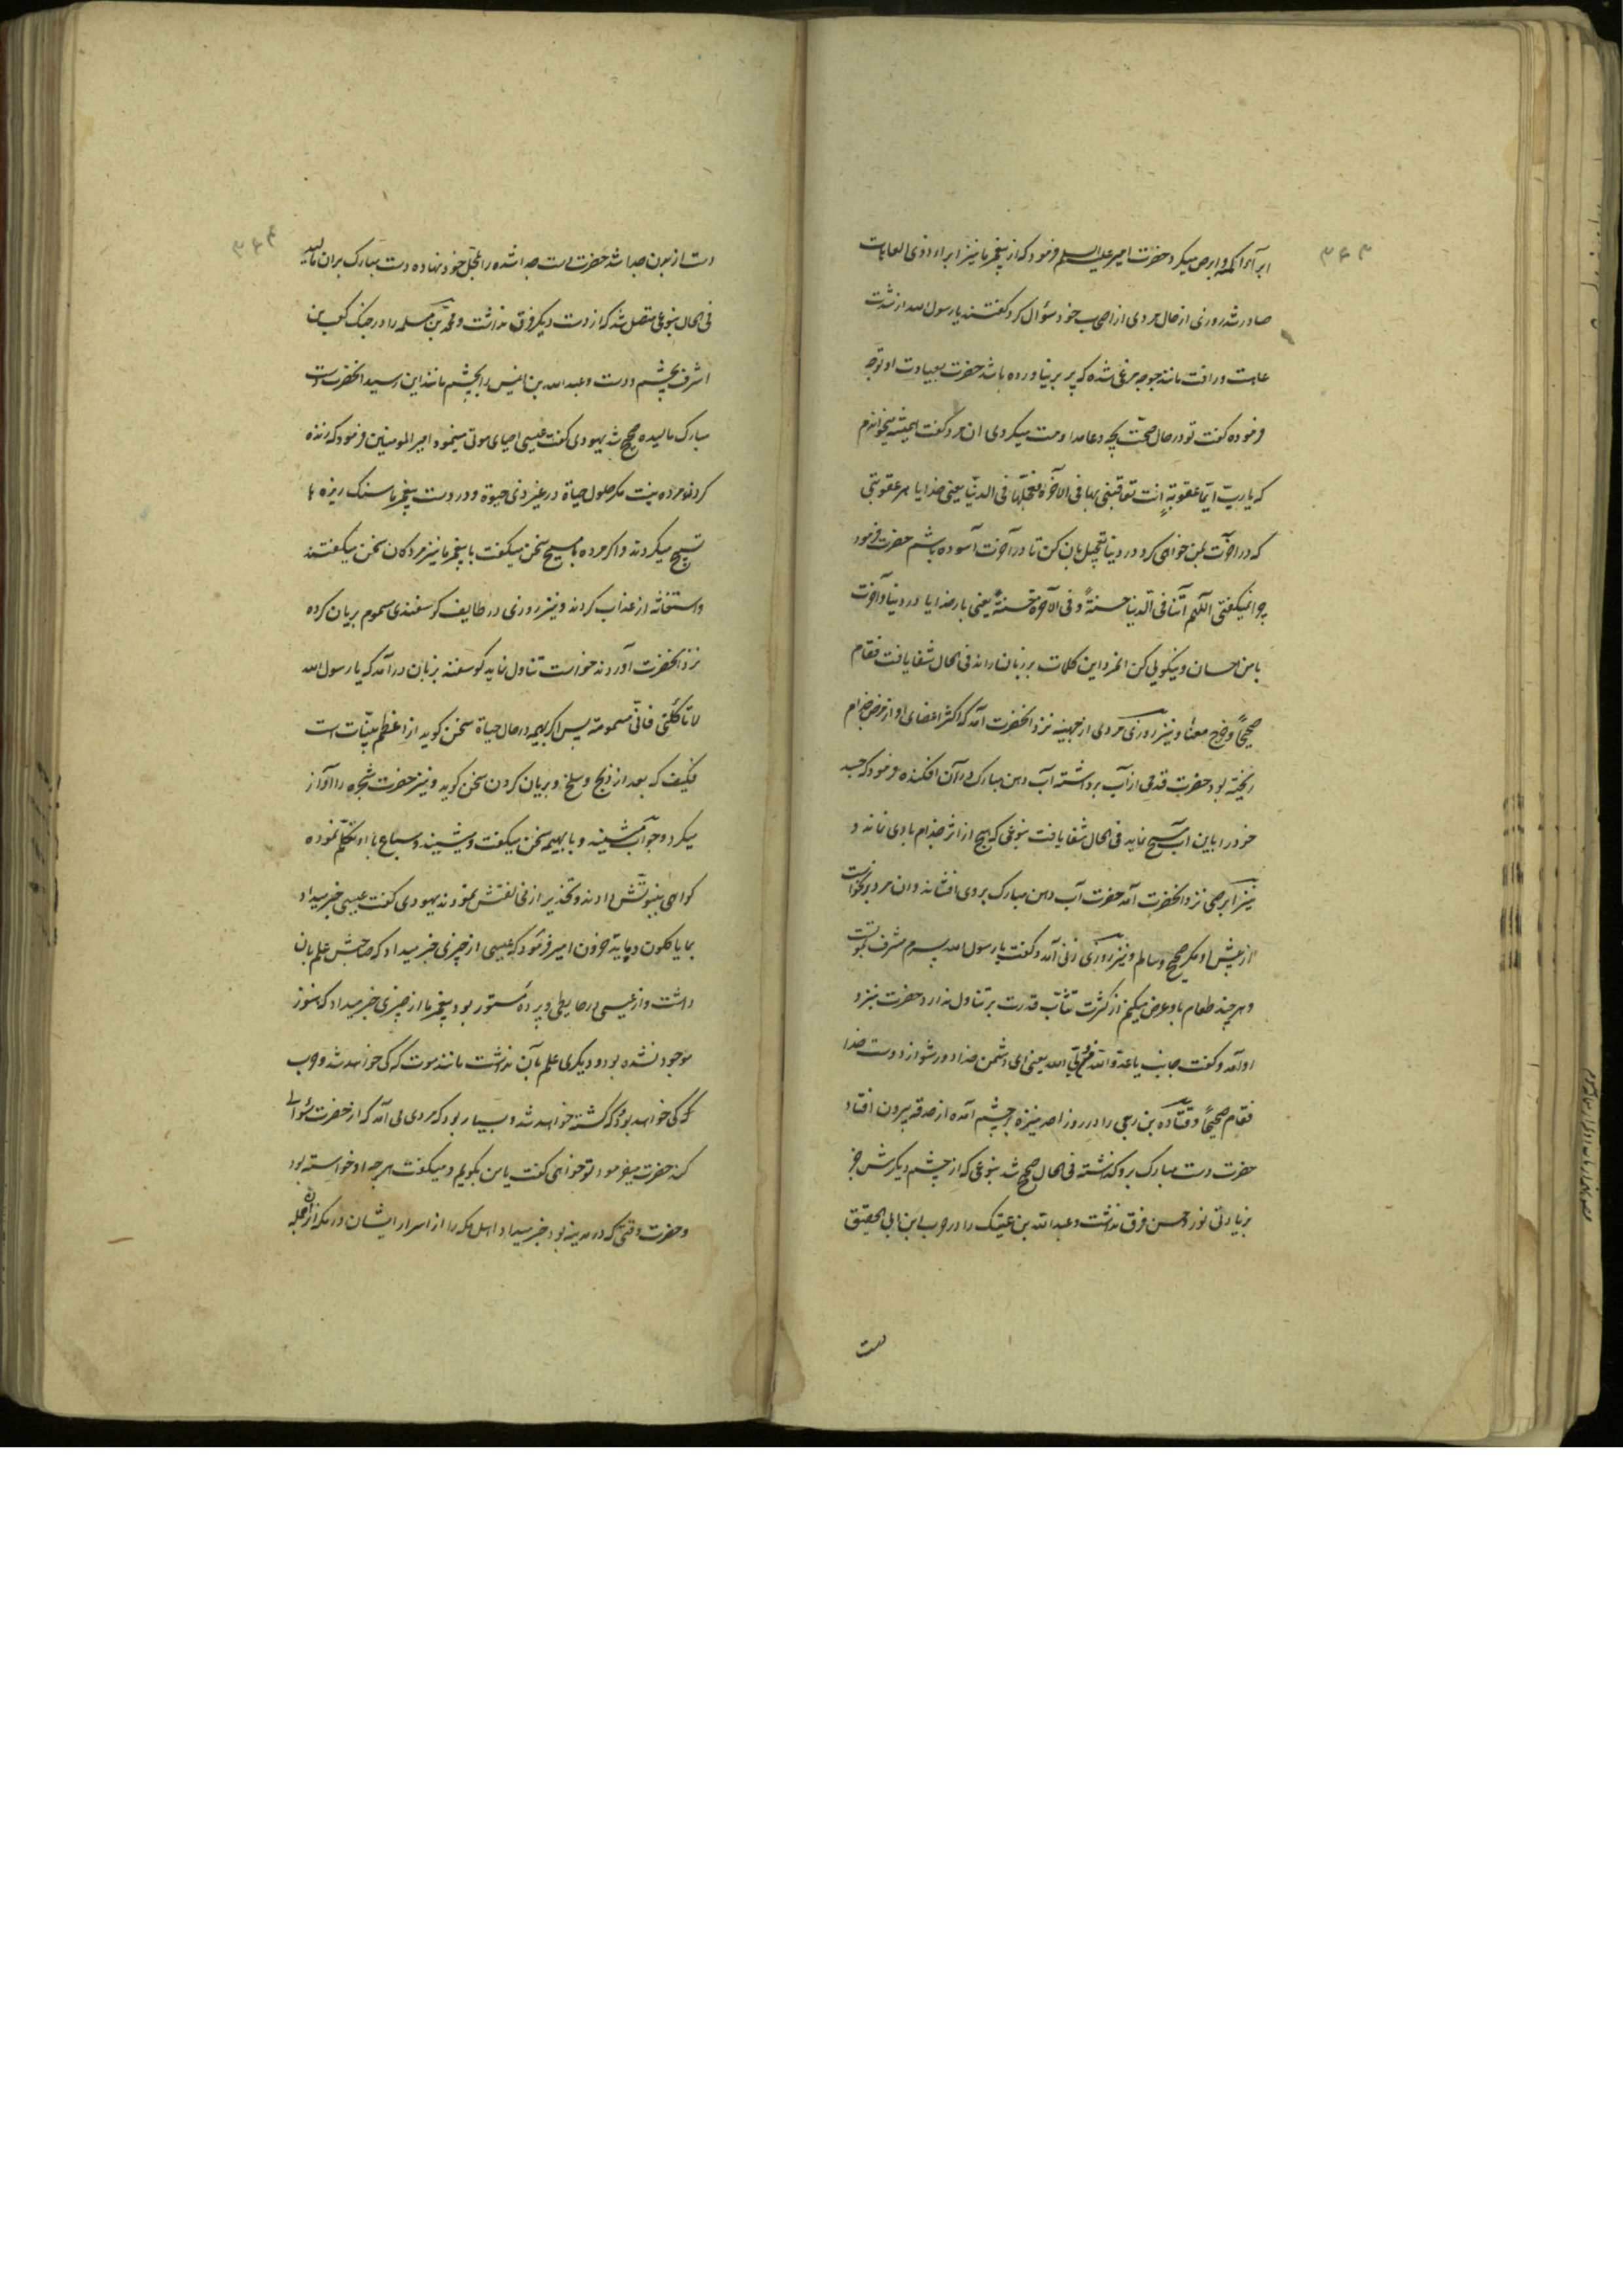 ۳۶۳
ابرآء اکمه و ابرص میکرد حضرت امیر علیه السلم فرمود که از پیغمبر ما نیز ابراء ذوی العاهات
صادر شد روزی از حال مردی از اصحاب خود سؤال کرد گفتند یا رسول الله از شدت
عاهت و رافت مانند جوجه مرغی شده که پر بر نیاورده باشد حضرت بعیادت او توجه
فرموده گفت تو در حال صحت بچه دعا مداومت میکردی ان مرد گفت همیشه میخواندم
که یا رب ایما عقوبة انت تعاقبنی بها فی الآخرة فعجلها فی الدنیا یعنی خدایا هر عقوبتی
که در آخرت بمن خواهی کرد در دنیا تعجیل بان کن تا در آخرت آسوده باشم حضرت فرمود
چرا نمیگفتی اللهم آتنا فی الدنیا حسنة و فی الآخرة حسنة یعنی بار خدایا در دنیا و آخرت
با من احسان و نیکویی کن انمرد این کلمات بر زبان راند فی الحال شفا یافت فقام
صحیحا و خرج معنا و نیز روزی مردی از جهینه نزد انحضرت آمد که اکثر اعضای او از مرض جذام
ریخته بود حضرت قدحی از آب برداشته آب دهن مبارک در آن افکنده فرمود که جسد
خود را باین آب مسح نماید فی الحال شفا یافت بنوعی که هیچ از اثر جذام با وی نماند و
نیز ابرصی نزد انحضرت آمد حضرت آب دهن مبارک بر وی افشاند و ان مرد برنخواست
از پیش او مگر صحیح و سالم و نیز روزی زنی آمد و گفت یا رسول الله پسرم مشرف بموتست
و هر چند طعام باو عرض میکنم از کثرت تثائب قدرت بر تناول ندارد حضرت بنزد
او آمد و گفت جانب یا عدو الله ولی الله یعنی ای دشمن خدا دور شو از دوست خدا
فقام صحیحا و قتاده بن ربعی را در روز احد نیزه بر چشم آمده از حدقه بیرون افتاد
حضرت دست مبارک برو گذشته فی الحال صحیح شد بنوعی که از چشم دیگرش جز
بزیادتی نور و حسن فرق نداشت و عبد الله بن عتیک را در حرب ابن ابی الحقیق
دست
۳۶۴
دست از بدن جدا شد حضرت دست جدا شده را بمحل خود نهاده دست مبارک بران مالید
فی الحال بنوعی متصل شد که از دست دیگر فرق نداشت و محمد بن مسلمه را در جنگ کعب بن
اشرف بچشم و دست و عبد الله بن انیس را بچشم مانند این رسید انحضرت دست
مبارک مالیده صحیح شد یهودی گفت عیسی احیای موتی مینمود امیر المومنین فرمود که زنده
کردن مرده نیست مگر حلول حیاة در غیر ذی حیوة و در دست پیغمبر ما سنگ ریزه ها
تسبیح میکردند و اگر مرده با مسیح سخن میگفت با پیغمبر ما نیز مردکان سخن میگفتند
و استغاثه از عذاب کردند و نیز روزی در طایف کوسفندی مسموم بریان کرده
نزد انحضرت آوردند خواست تناول نماید کوسفند بزبان درآمد که یا رسول الله
لا تأکلنی فانی مسمومة پس اگر بهیمه در حال حیاة سخن کوید از اعظم بینات است
فکیف که بعد از ذبح و سلخ و بریان کردن سخن کوید و نیز حضرت شجره را آواز
میکرد و جواب میشنید و با بهیمه سخن میگفت و میشنید و سباع با او تکلم نموده
کواهی بنبوتش دادند و تحذیر از مخالفتش نمودند یهودی گفت عیسی خبر میداد
بما یاکلون و ما یدخرون امیر فرمود که عیسی از چیزی خبر میداد که صاحبش علم بان
داشت و از عیسی در حایطی و پرده مستور بود پیغمبر ما از چیزی خبر میداد که هنوز
موجود نشده بود و دیگری علم بآن نداشت مانند موت که کی خواهد شد و حرب
که کی خواهد بود و که کشته خواهد شد و بسیار بود که مردی می آمد که از حضرت سؤالی
کند حضرت میفرمود تو خواهی گفت یا من بگویم و میگفت هر چه او خواسته بود
و حضرت وقتی که در مدینه بود خبر میداد اهل مکه را از اسرار ایشان در مکه از انجمله